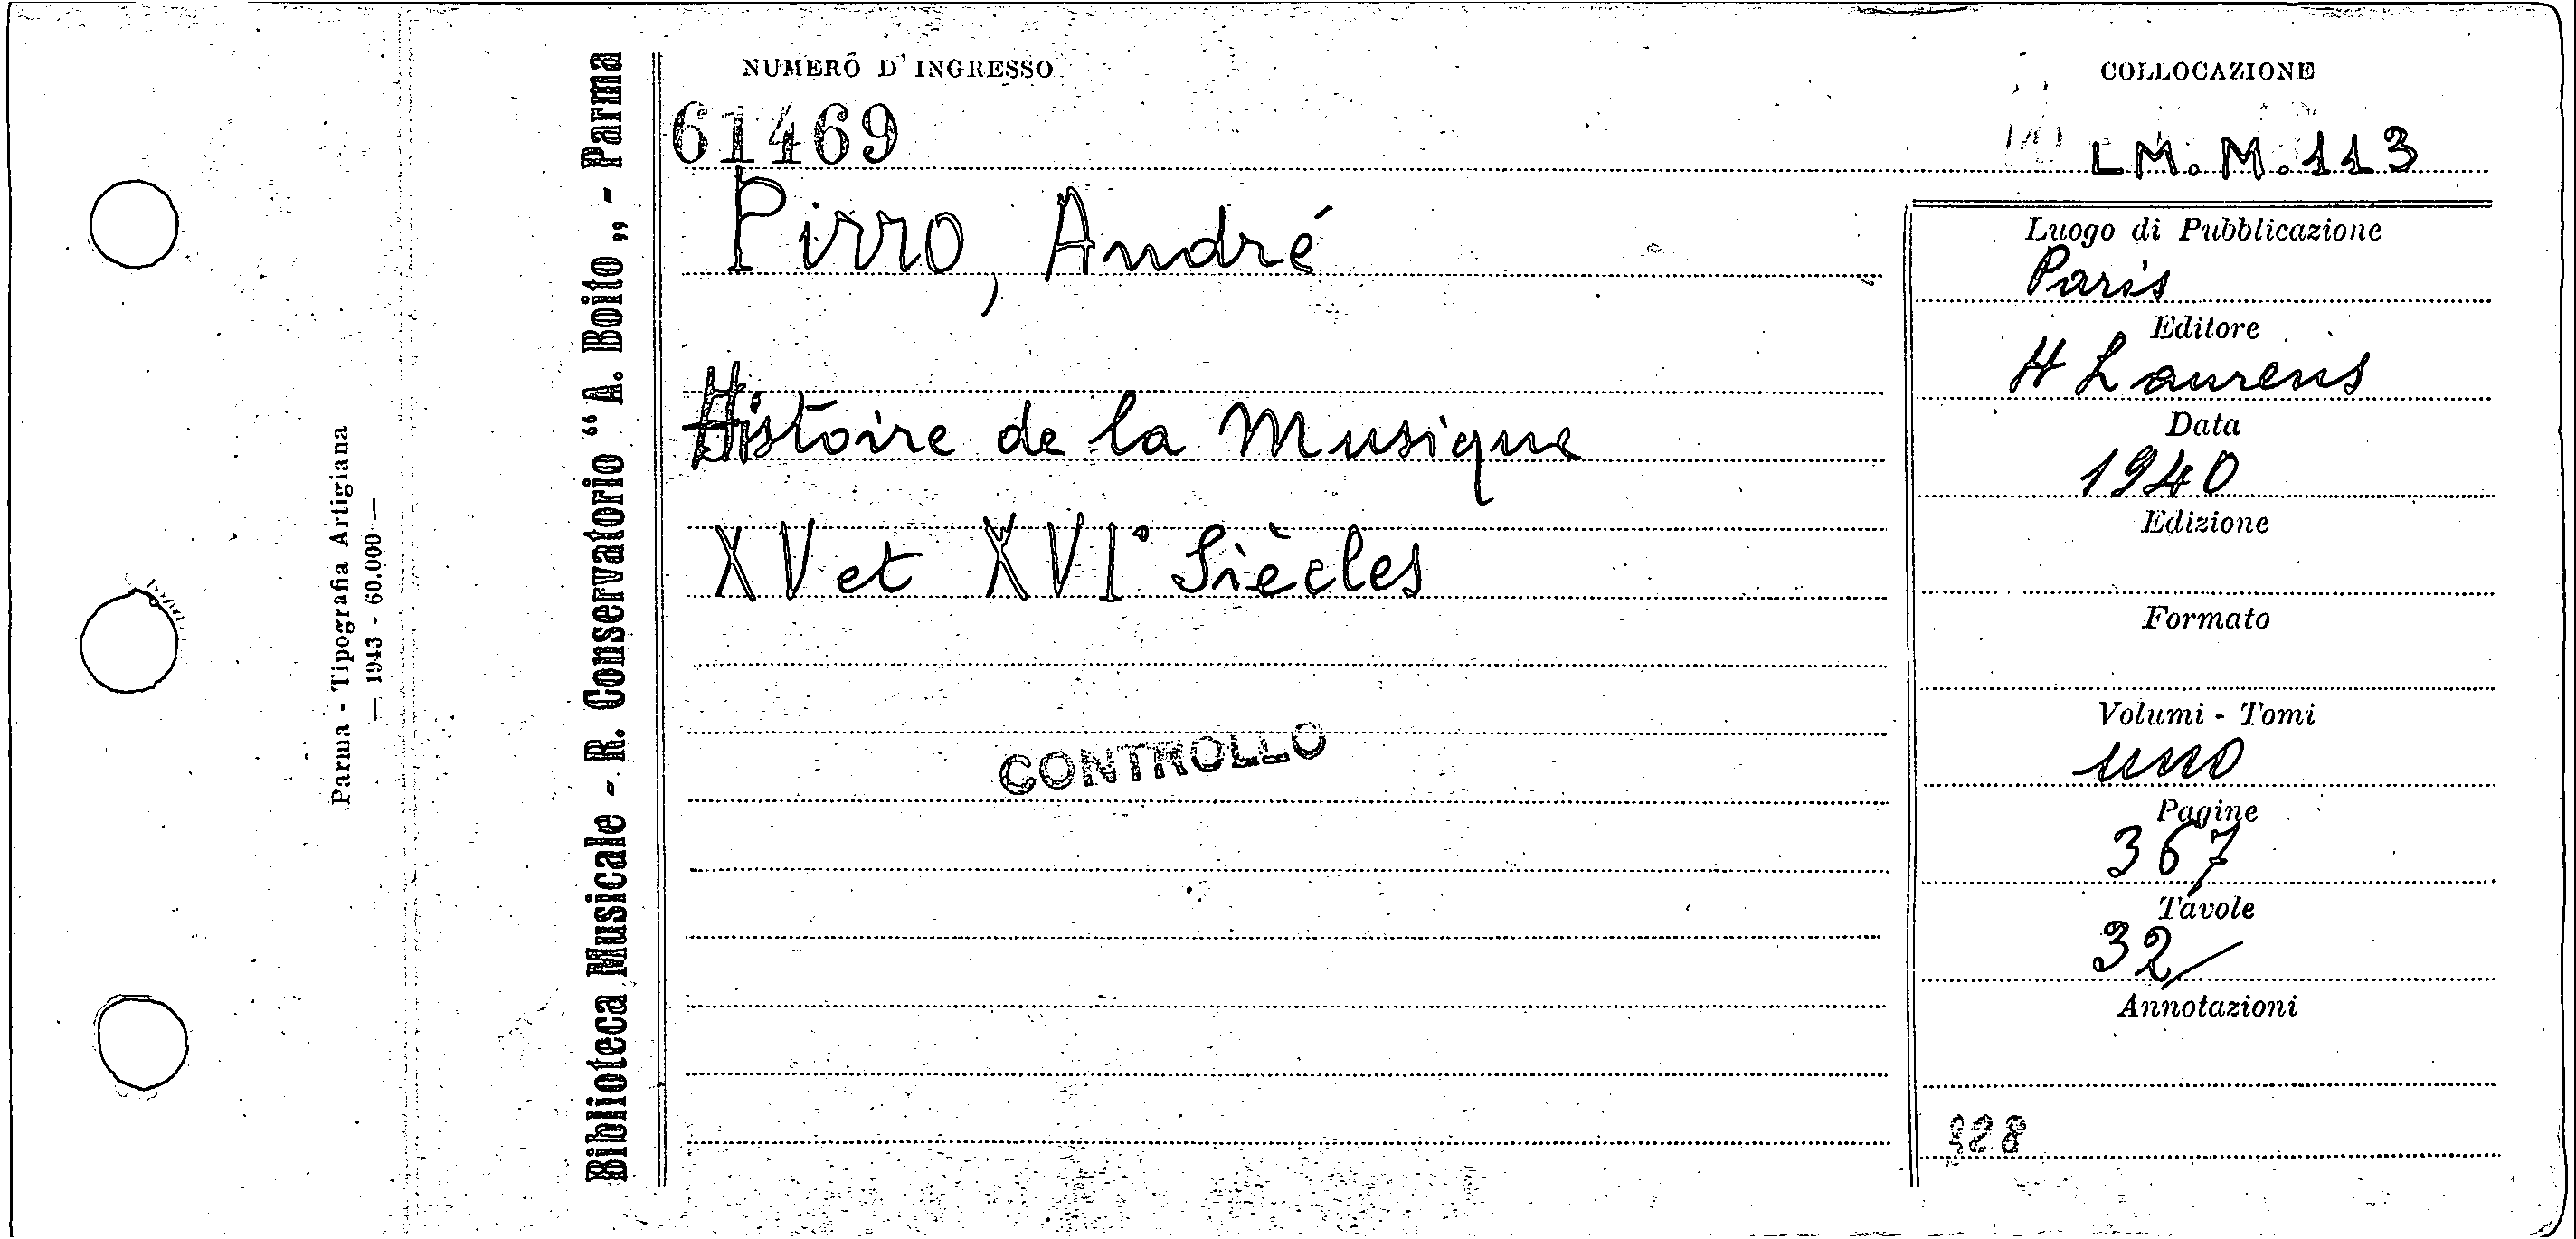 Parma - Tipografia Artigiana
— 1943 - 60.000 —
Biblioteca Musicale - R. Conservatorio “A. Boito„ - Parma
NUMERO D'INGRESSO
61469
COLLOCAZIONE
LM. M. 113
Pirro, André
Histoire de la Musique
XV et XVI° Siècles
CONTROLLO
Luogo di Pubblicazione
Paris
Editore
H Laurens
Data
1940
Edizione
Formato
Volumi - Tomi
uno
Pagine
367
Tavole
32
Annotazioni